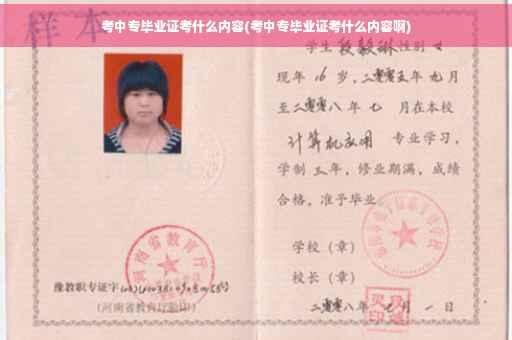 考中专毕业证考什么内容(考中专毕业证考什么内容啊)
样本
学生 段毅琳 性别 女
现年 16 岁，二零零五年 九 月
至二零零八年 七 月在本校
计算机应用 专业学习，
学制 三 年，修业期满，成绩
合格，准予毕业
学校（章）
校长（章）
二零零八年 七 月 一 日
河南省教育厅
豫教职专证字
(河南省教育厅验印)